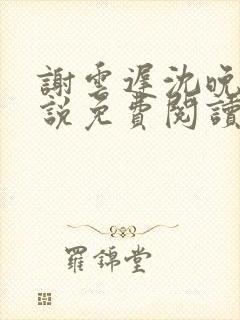 謝雲遲沈晚
説免費閱讀
羅錦堂